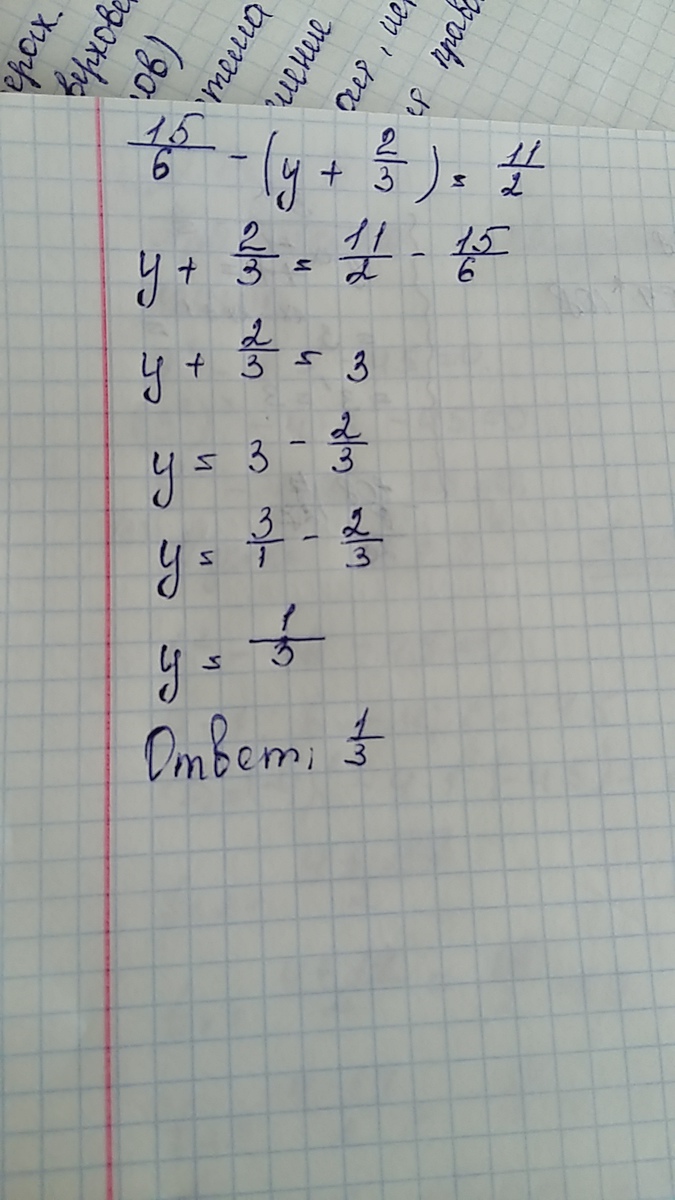 ерох.
верховен
ов)
стема
шение
ая, ист
я прав
15/6 - (y + 2/3) = 11/2
y + 2/3 = 11/2 - 15/6
y + 2/3 = 3
y = 3 - 2/3
y = 3/1 - 2/3
y = 1/3
Ответ: 1/3